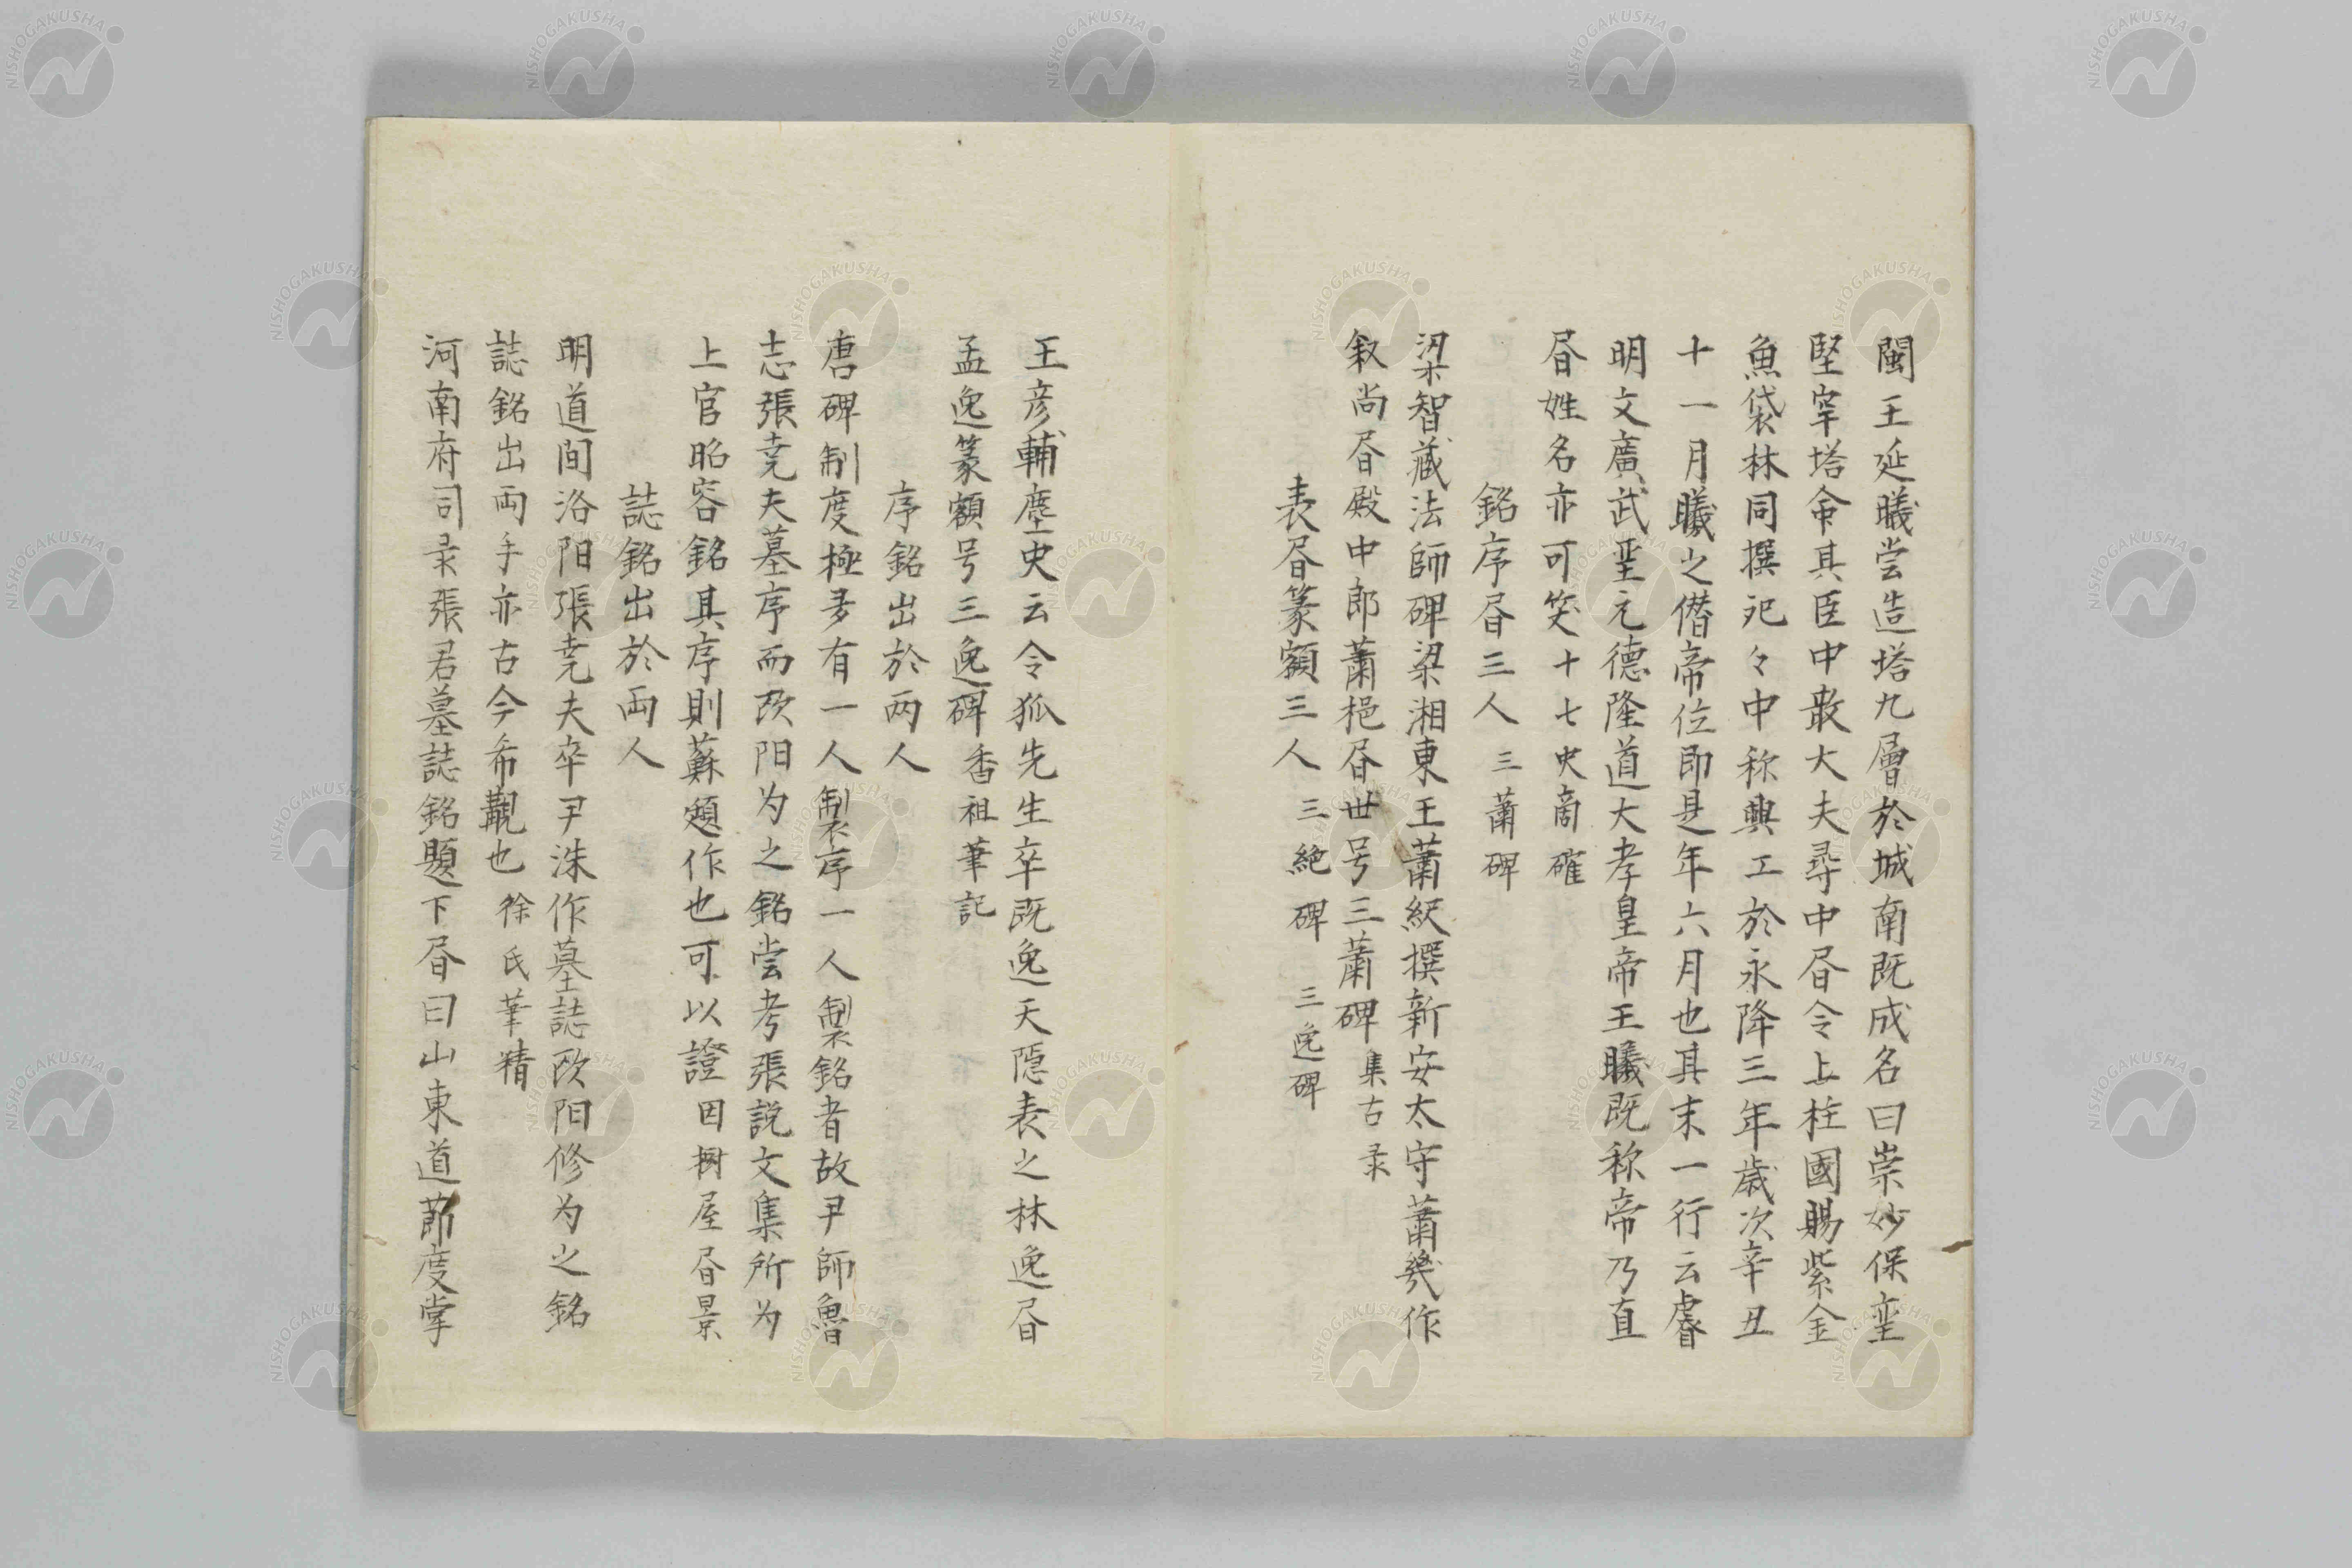 閩王延曦嘗造塔九層於城南既成名曰崇妙保𡉞
堅窂塔命其臣中散大夫尋中昼令上柱國賜紫金
魚袋林同撰𥘁々中称興工於永隆三年歳次辛丑
十一月曦之僭帝位即是年六月也其末一行云睿
明文廣武𡉞元德隆道大孝皇帝王曦既称帝乃直
昼姓名亦可笑十七史商確
銘序昼三人 三蕭碑
梁智藏法師碑梁湘東王蕭繹撰新安太守蕭幾作
叙尚昼殿中郎蕭挹昼世号三蕭碑 集古录
表昼篆額三人 三絶碑 三逸碑
王彦輔塵史云令狐先生卒既逸天隠表之林逸昼
孟逸篆額号三逸碑 香祖筆記
序銘出於两人
唐碑制度極多有一人製序一人製銘者故尹師魯
志張尭夫墓序而欧阳为之銘嘗考張説文集所为
上官昭容銘其序則蘇頲作也可以證因樹屋昼景
誌銘出於両人
明道间洛阳張尭夫卒尹洙作墓誌欧阳修为之銘
誌銘出両手亦古今希覯也 徐氏筆精
河南府司录張君墓誌銘題下昼曰山東道節度掌
NISHOGAKUSHA